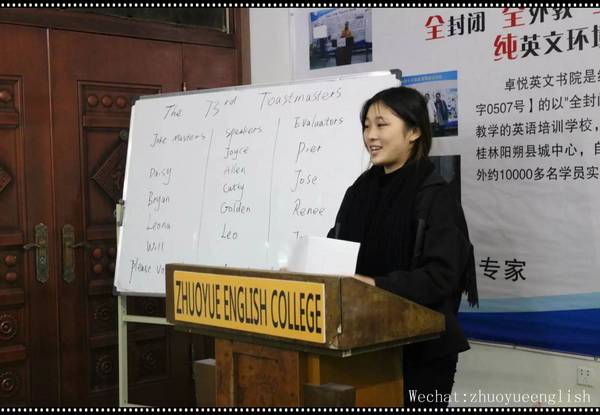 The 73rd Toastmasters
Joke Masters
Daisy
Bryan
Leona
Will
Please vo
Speakers
Joyce
Allen
Cathy
Golden
Leo
Evaluators
Pier
Jose
Renee
全封闭 全外教
纯英文环境
卓悦英文书院是经
字0507号】的以"全封
教学的英语培训学校,
桂林阳朔县城中心,自
外约10000多名学员实
专家
ZHUOYUE ENGLISH COLLEGE
Wechat:zhuoyueenglish